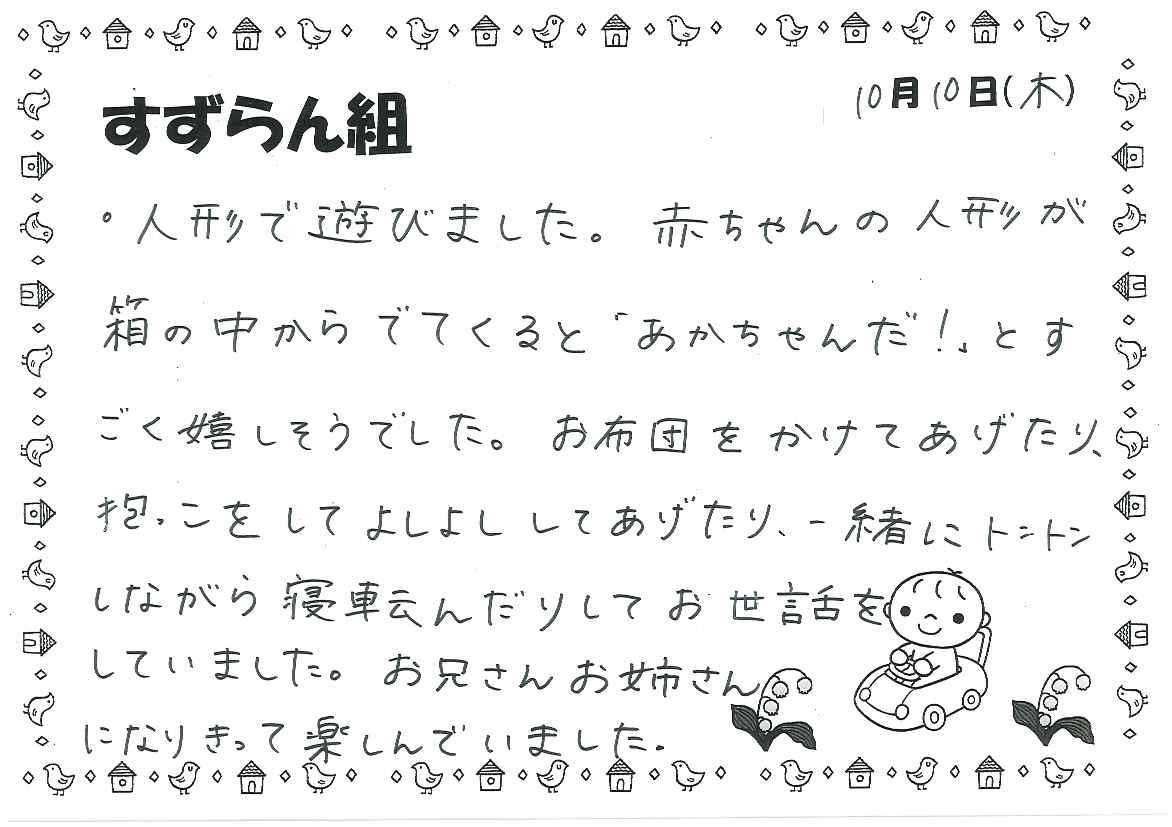 すずらん組
10月10日(木)
。人形で遊びました。赤ちゃんの人形が
箱の中からでてくると「あかちゃんだ!」とす
ごく嬉しそうでした。お布団をかけてあげたり、
抱っこをしてよしよししてあげたり、一緒にトントン
しながら寝転んだりしてお世話を
していました。お兄さんお姉さん
になりきって楽しんでいました。